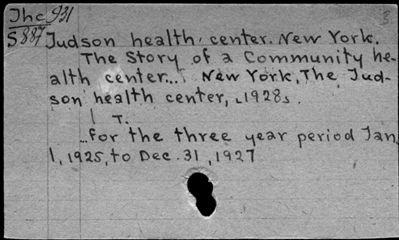 Jhc 931
S887 Judson health center. New York.
The Story of a Community he-
alth center... New York, The Jud-
son health center, [1928].
| T.
...for the three year period Jan.
1, 1925, to Dec. 31, 1927